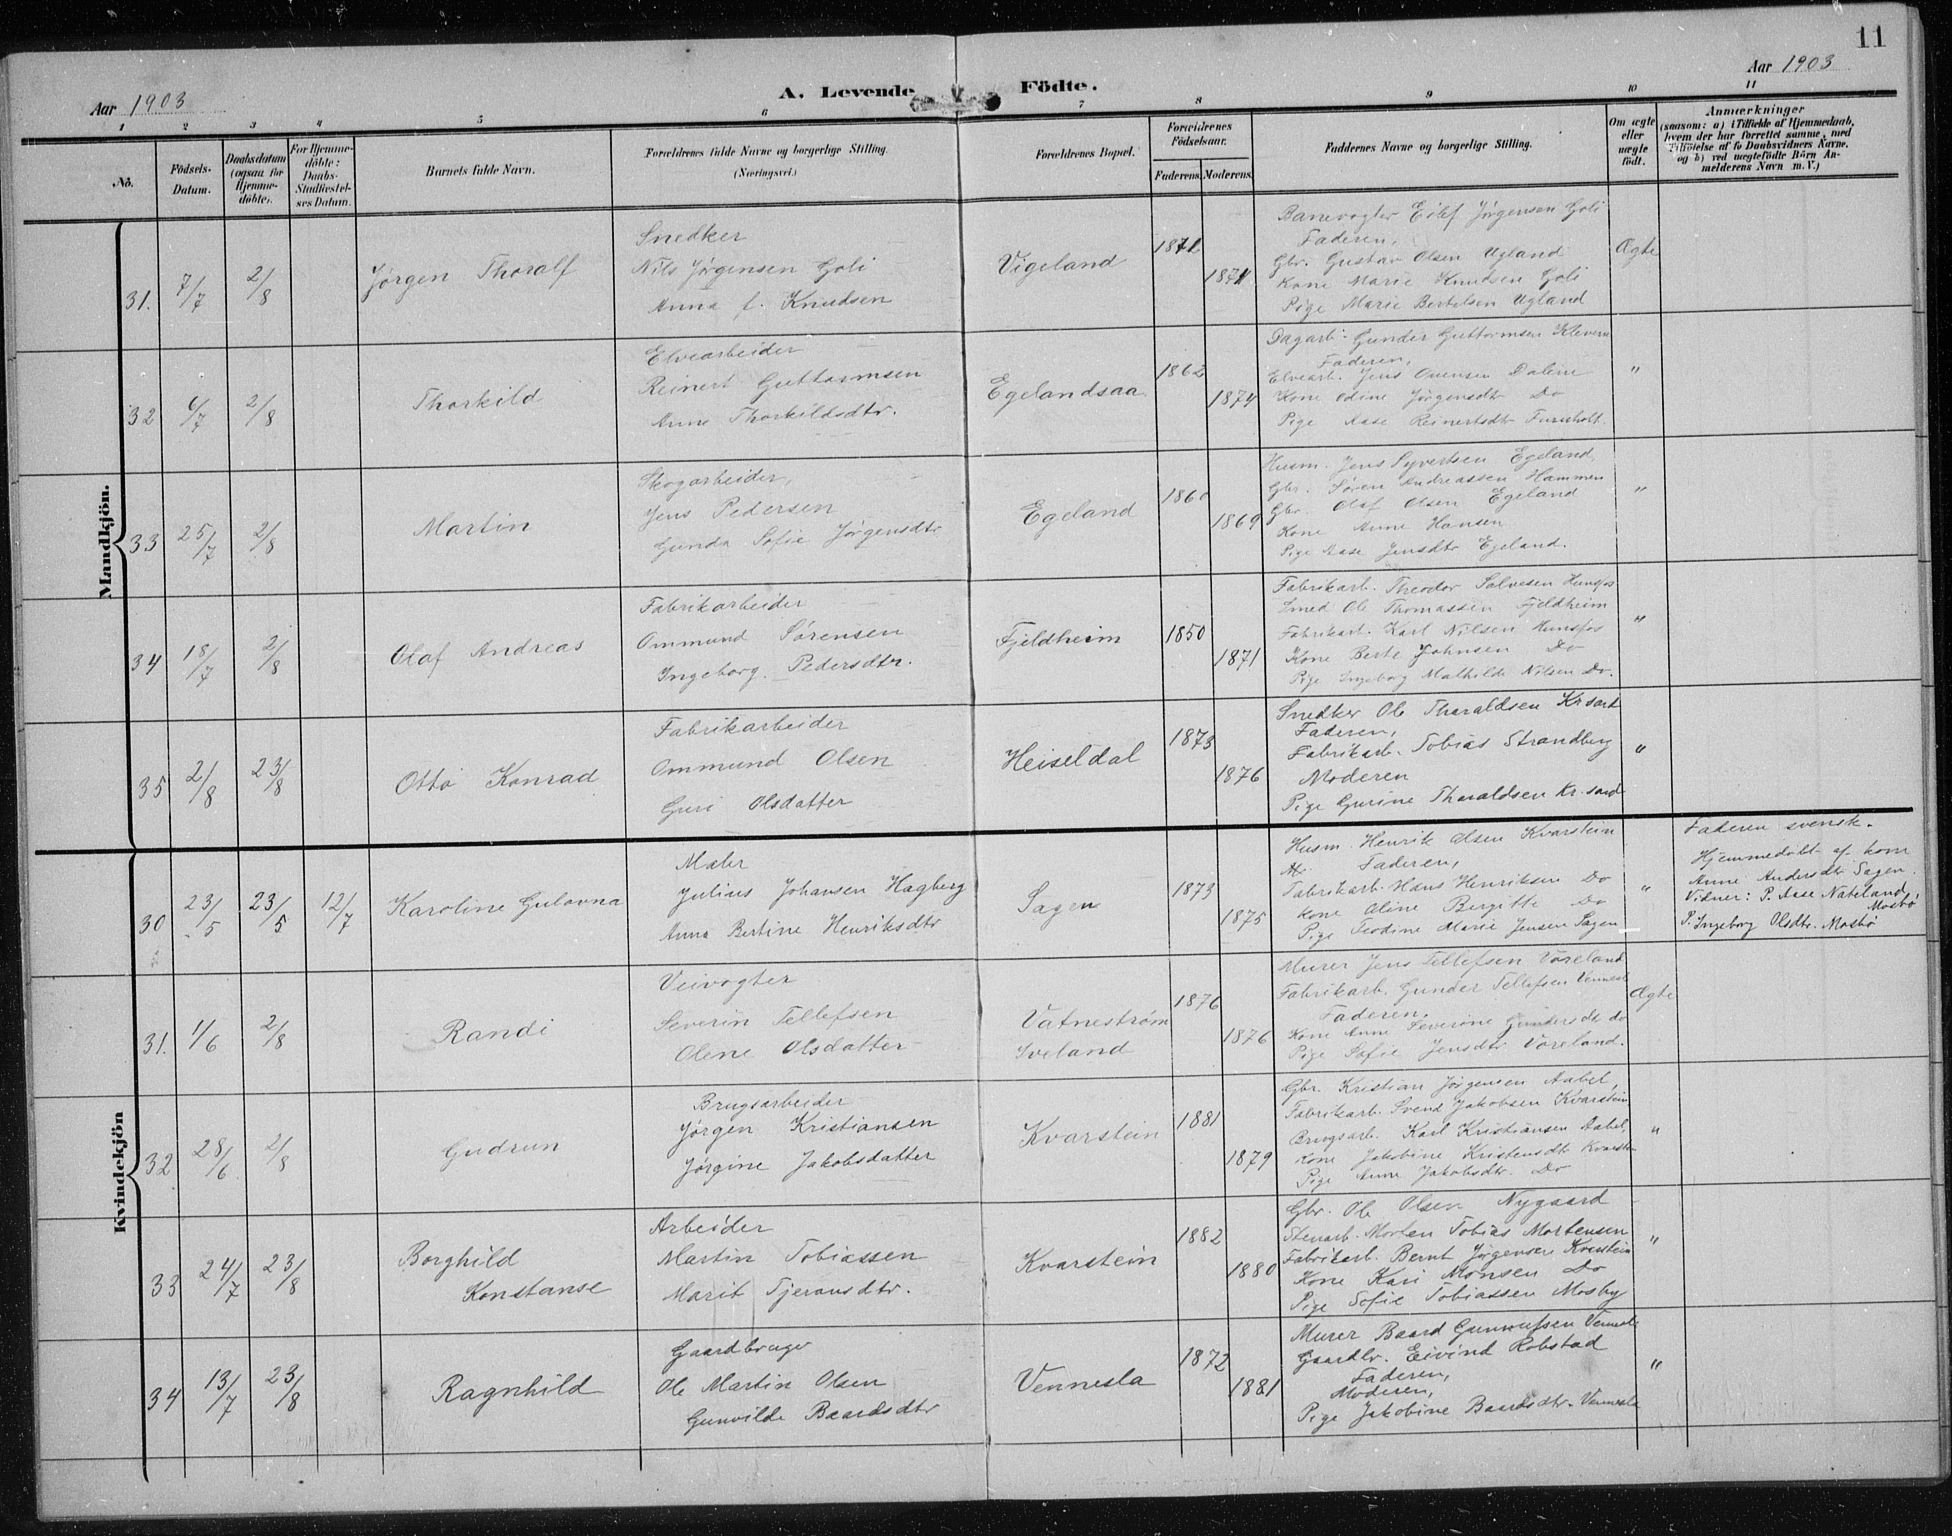 11
Aar 1903
A. Levende Födte.
Aar 1903
1 2 3 4 5 6 7 8 9 10 11
No.
Födsels-
Datum.
Daabsdatum
(ogsaa for
Hjemme-
döbte).
For Hjemme-
döbte:
Daabs-
Stadfæstel-
ses Datum.
Barnets fulde Navn.
Forældrenes fulde Navne og borgerlige Stilling.
(Næringsvei.)
Forældrenes Bopæl.
Forældrenes
Födselsaar.
Faderens. Moderens.
Faddernes Navne og borgerlige Stilling.
Om ægte
eller
uægte
födt.
Anmærkninger
(saasom: a) i Tilfælde af Hjemmedaab,
hvem der har forrettet samme, med
Tilföielse af to Daabsvidners Navne,
og b) ved uægtefödte Börn An-
melderens Navn m. V.)
Mandkjön.
31. 7/7 2/8
Jørgen Thoralf
Snedker
Nils Jørgensen Goli
Anna f. Knudsen
Vigeland
1871
Banevogter Eilef Jørgensen Goli
Faderen,
Gbr. Gustav Olsen Ugland
Kone Marie Knudsen Goli
Pige Marie Bertelsen Ugland
Ægte
32 6/7 2/8
Thorkild
Elvearbeider
Reinert Guttormsen
Anne Thorkildsdtr.
Egelandsaa
1862
1874
Dagarb. Gunder Guttormsen
Faderen,
Elvearb. Jens Dalene
Kone Odine Jørgensdtr Do
Pige Aase Reinertsdtr Furuholt
"
33 25/7 2/8
Martin
Skogarbeider,
Jens Pedersen
Gunda Sofie Jørgensdtr
Egeland
1860
1869
Husm. Jens Syvertsen Egeland,
Gbr. Søren Andreassen Hammen
Gbr. Olaf Olsen Egeland
Kone Anne Hansen
Pige Aase Jensdtr Egeland.
"
34 18/7 2/8
Olaf Andreas
Fabrikarbeider
Ommund Sørensen
Ingeborg Pedersdtr.
Fjeldheim
1850
1871
Fabrikarb. Theodor Salvesen Hunsfos
Smed Ole Thomassen Fjeldheim
Fabrikarb. Karl Nilsen Hunsfos
Kone Berte Johnsen Do
Pige Ingeborg Mathilde Nilsen Do.
"
35 2/8 23/8
Otto Konrad
Fabrikarbeider
Ommund Olsen
Guri Olsdatter
Heiseldal
1873
1876
Snedker Ole Tharaldsen Kr.sand
Faderen,
Fabrikarb. Tobias Strandberg
Moderen
Pige Gurine Tharaldsen Kr.sand
"
Kvindekjön
30 23/5 23/5 12/7
Karoline Gulovna
Maler
Julius Johansen Hagberg
Anna Bertine Henriksdtr
Sagen
1873
1875
Husm. Henrik Olsen Kvarstein
Faderen,
Fabrikarb. Hans Henriksen Do
Kone Oline Bergitte Do
Pige Teodine Marie Jensen Sagen
"
Faderen svensk.
Hjemmedøbt af kone
Anne Andersdtr Sagen.
Vidner: P. Aase Nateland,
Mosbø
P. Ingeborg Olsdtr. Mosbø
31. 1/6 2/8
Randi
Veivogter
Severin Tellefsen
Olene Olsdatter
Vatnestrøm
Iveland
1876
1876
Murer Jens Tellefsen Vöreland
Fabrikarb. Gunder Tellefsen Vennesla
Faderen,
Kone Anne Severine Gundersdtr do
Pige Sofie Jensdtr Vöreland.
Ægte
32 28/6 2/8
Gudrun
Brugsarbeider
Jørgen Kristiansen
Jørgine Jakobsdatter
Kvarstein
1881
1879
Gbr. Kristian Jørgensen Aabel,
Fabrikarb. Svend Jakobsen Kvarstein
Brugsarb. Karl Kristiansen Aabel
Kone Jakobine Kristensdtr Kvarstein
Pige Anne Jakobsdtr. Do
"
33 24/7 23/8
Borghild
Konstanse
Arbeider
Martin Tobiassen
Marit Tjeransdtr.
Kvarstein
1882
1880
Gbr. Ole Olsen Nygaard
Stenarb. Morten Tobias Mortensen
Fabrikarb. Bernt Jørgensen Kvarstein
Kone Kari Monsen Do
Pige Sofie Tobiassen Mosby
"
34 13/7 23/8
Ragnhild
Gaardbruger
Ole Martin Olsen
Gunvilde Baardsdtr
Vennesla
1872
1881
Murer Baard Gunnufsen Vennesla
Gaardbr. Eivind Robstad
Faderen,
Moderen,
Pige Jakobine Baardsdtr. Vennesla
"